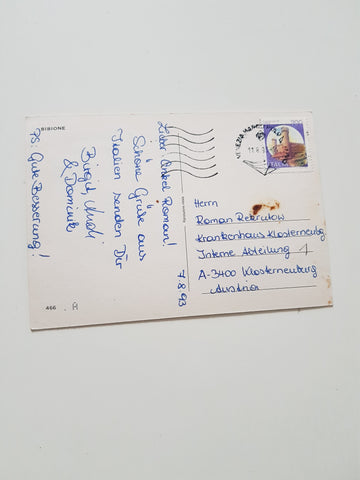 BIBIONE
7.8.93
Lieber Onkel Roman!
Schöne Grüße aus
Italien senden Dir
Birgit
& Dominik
PS: Gute Besserung!
466
Herrn
Roman
Krankenhaus Klosterneubg
Interne Abteilung
A-3400 Klosterneuburg
Austria